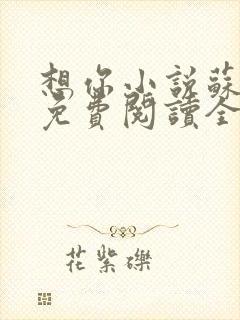 想你小说蘇
免費閱讀全
花紫礫